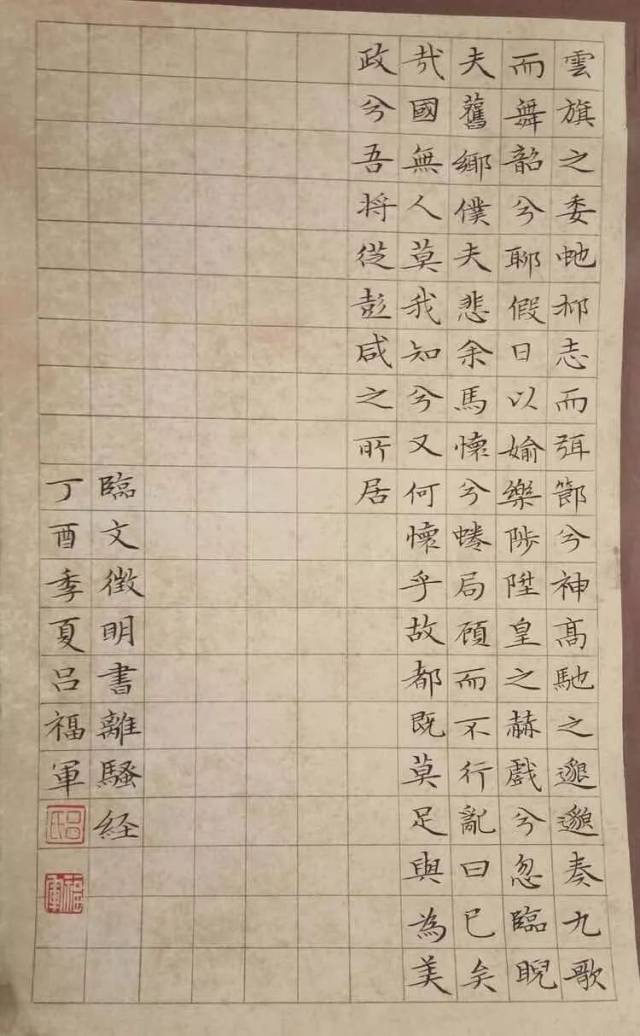 雲旗之委虵抑志而弭節兮神髙馳之邈邈奏九歌
而舞韶兮聊假日以婾樂陟陞皇之赫戲兮忽臨睨
夫舊鄉僕夫悲余馬懷兮蜷局顧而不行亂曰已矣
哉國無人莫我知兮又何懷乎故都既莫足與為美
政兮吾将從彭咸之所居
臨文徵明書離騷経
丁酉季夏呂福軍
呂氏
福軍